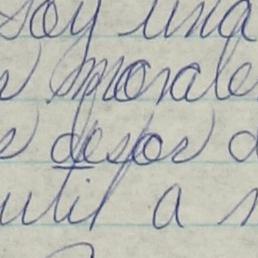 soy una
morale
deseos d
util a